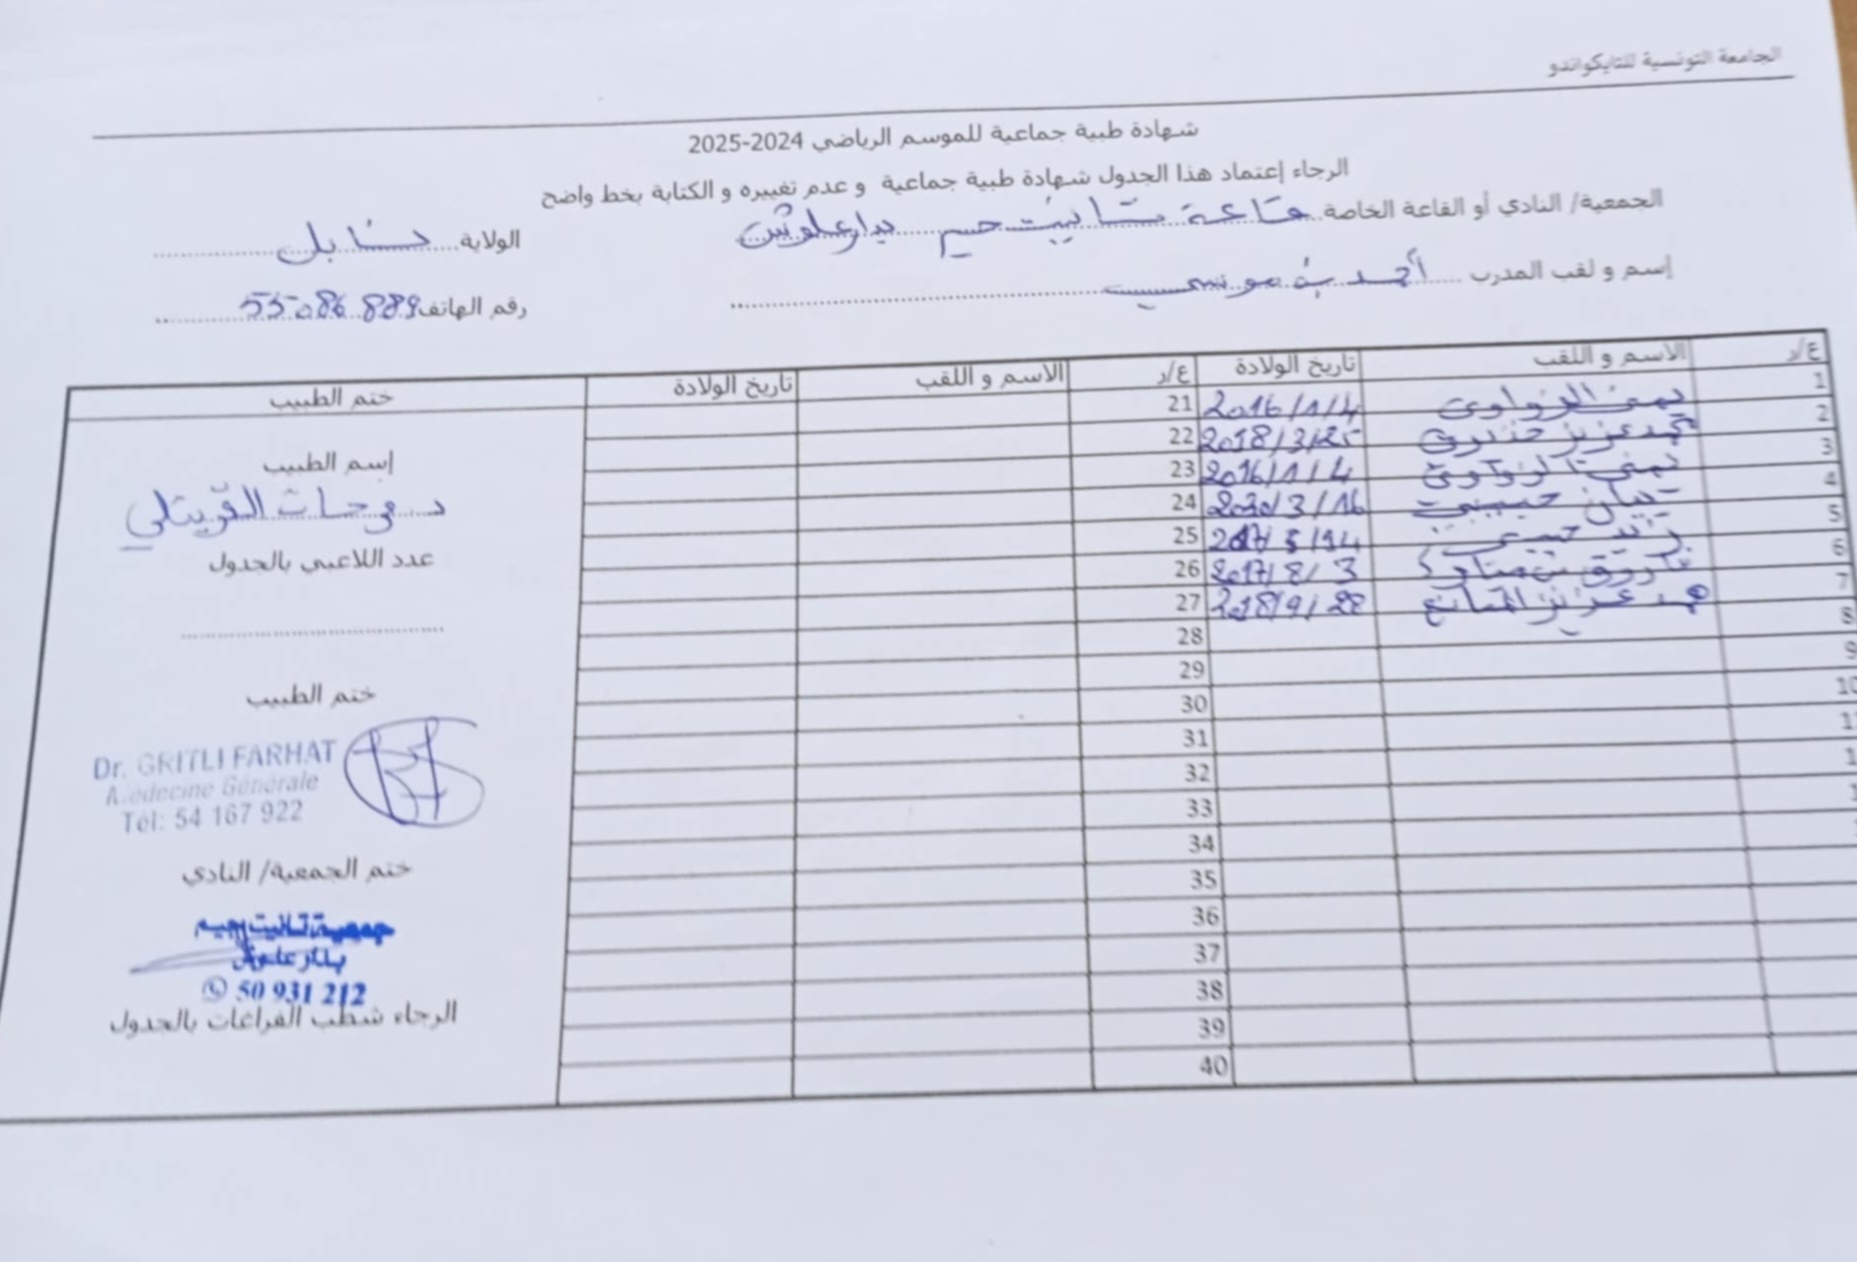 الجامعة التونسية للتايكواندو
شهادة طبية جماعية للموسم الرياضي 2024-2025
الرجاء إعتماد هذا الجدول شهادة طبية جماعية و عدم تغييره و الكتابة بخط واضح
الجمعية/ النادي أو القاعة الخاصة قاعة تانيت جيم بدار علوش
الولاية نابل
إسم و لقب المدرب أحمد بن موسى
رقم الهاتف 55.086.889
ع/ر الاسم و اللقب تاريخ الولادة ع/ر الاسم و اللقب تاريخ الولادة ختم الطبيب
1 يمنى الزواوي 2016/1/4 21
2 محمد عزيز 2018/3/25 22
3 يمنى الزواوي 2016/1/4 23
4 بيان حبيبي 2020/3/16 24
5 زيد حبيبي 25
6 فاروق بن 2017/8/3 26
7 محمد عزيز المانع 2018/9/28 27
8 28
9 29
10 30
31
32
33
34
35
36
37
38
39
40
إسم الطبيب
د. فرحات القريتلي
عدد اللاعبي بالجدول
ختم الطبيب
Dr. GRITLI FARHAT
Médecine Générale
Tél: 54 167 922
ختم الجمعية/ النادي
جمعية تانيت جيم
بدار علوش
50 931 212
الرجاء شطب الفراغات بالجدول